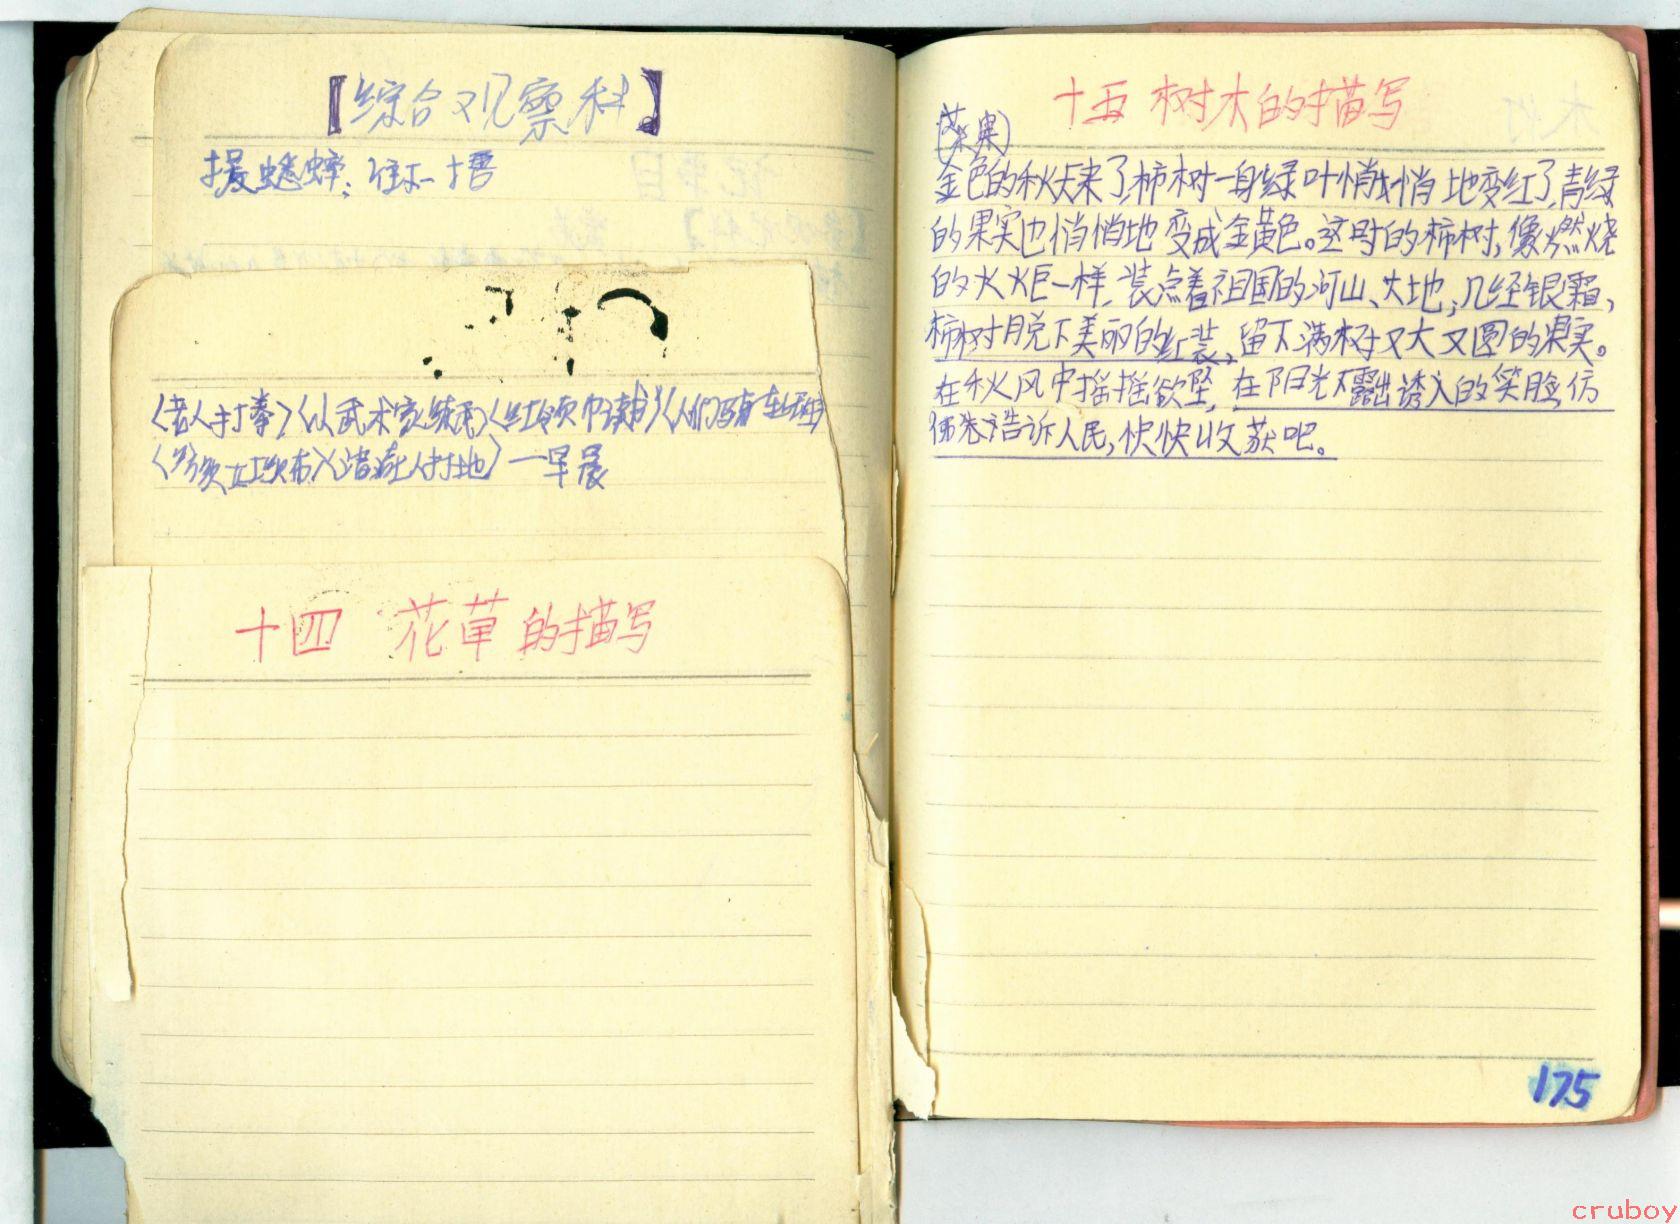 【综合观察科】
捉蟋蟀:往一捂
〈老人打拳〉〈以武术家练秀〉〈红领巾读书〉〈人们骑车上班〉
〈清洁工人扫地〉一早晨
十四 花草的描写
十五 树木的描写
(菜果)
金色的秋天来了,柿树一身绿叶悄悄地变红了,青绿
的果实也悄悄地变成金黄色。这时的柿树,像燃烧
的火炬一样,装点着祖国的河山、大地,几经银霜,
柿树脱下美丽的红装,留下满树又大又圆的果实。
在秋风中摇摇欲坠,在阳光下露出诱人的笑脸,仿
佛告诉人民,快快收获吧。
175
cruboy